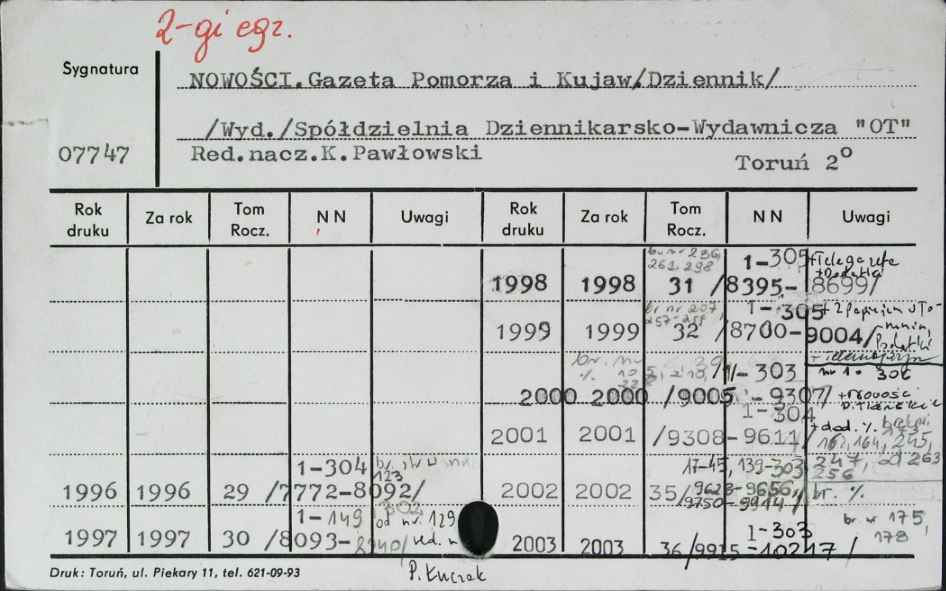 2-gi egz.
Sygnatura
NOWOŚCI.Gazeta Pomorza i Kujaw/Dziennik/
/Wyd./Spółdzielnia Dziennikarsko-Wydawnicza "OT"
07747
Red.nacz.K.Pawłowski
Toruń 2º
Rok druku Za rok Tom Rocz. NN Uwagi Rok druku Za rok Tom Rocz. NN Uwagi
br. nr 236, 1-305 +Telegazeta
261, 298 +Dodatki
1998 1998 31 /8395-8699/
br nr 207, 1-305
1999 1999 32 /8700-9004/
1-303 nr 1. 306
2000 2000 /9005-9307/
1-304
2001 2001 /9308-9611/ 162, 164, 245,
1-304 123 17-45, 139-303 247, 263
256
1996 1996 29 /7772-8092/ 2002 2002 35/9628-9656,
9750-9914/ br.
1-149 od nr. 129 1-303 br nr 175,
178
1997 1997 30 /8093- red. n 2003 2003 36/9915-10217/
P. Łuczak
Druk: Toruń, ul. Piekary 11, tel. 621-09-93